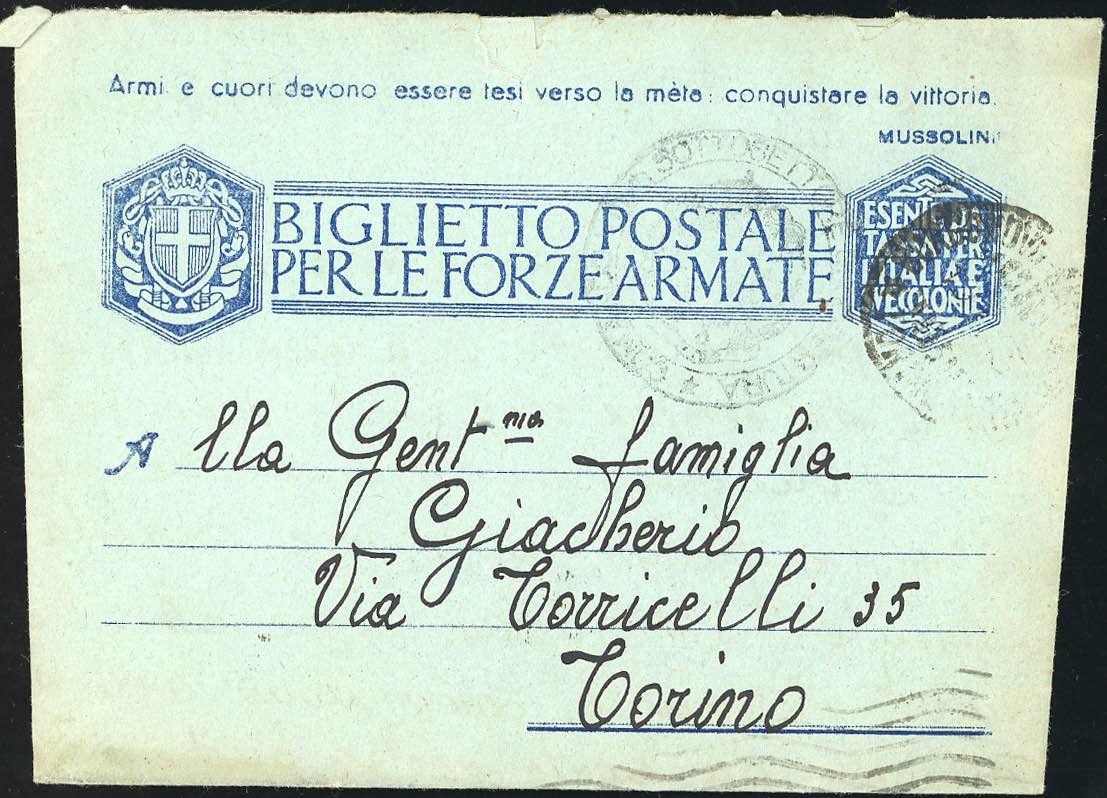 Armi e cuori devono essere tesi verso la mèta: conquistare la vittoria.
MUSSOLINI
BIGLIETTO POSTALE
PER LE FORZE ARMATE
ESENTE DA
TASSA PER
L'ITALIA E
LE COLONIE
Alla Gent.ma famiglia
Giacherio
Via Torricelli 35
Torino